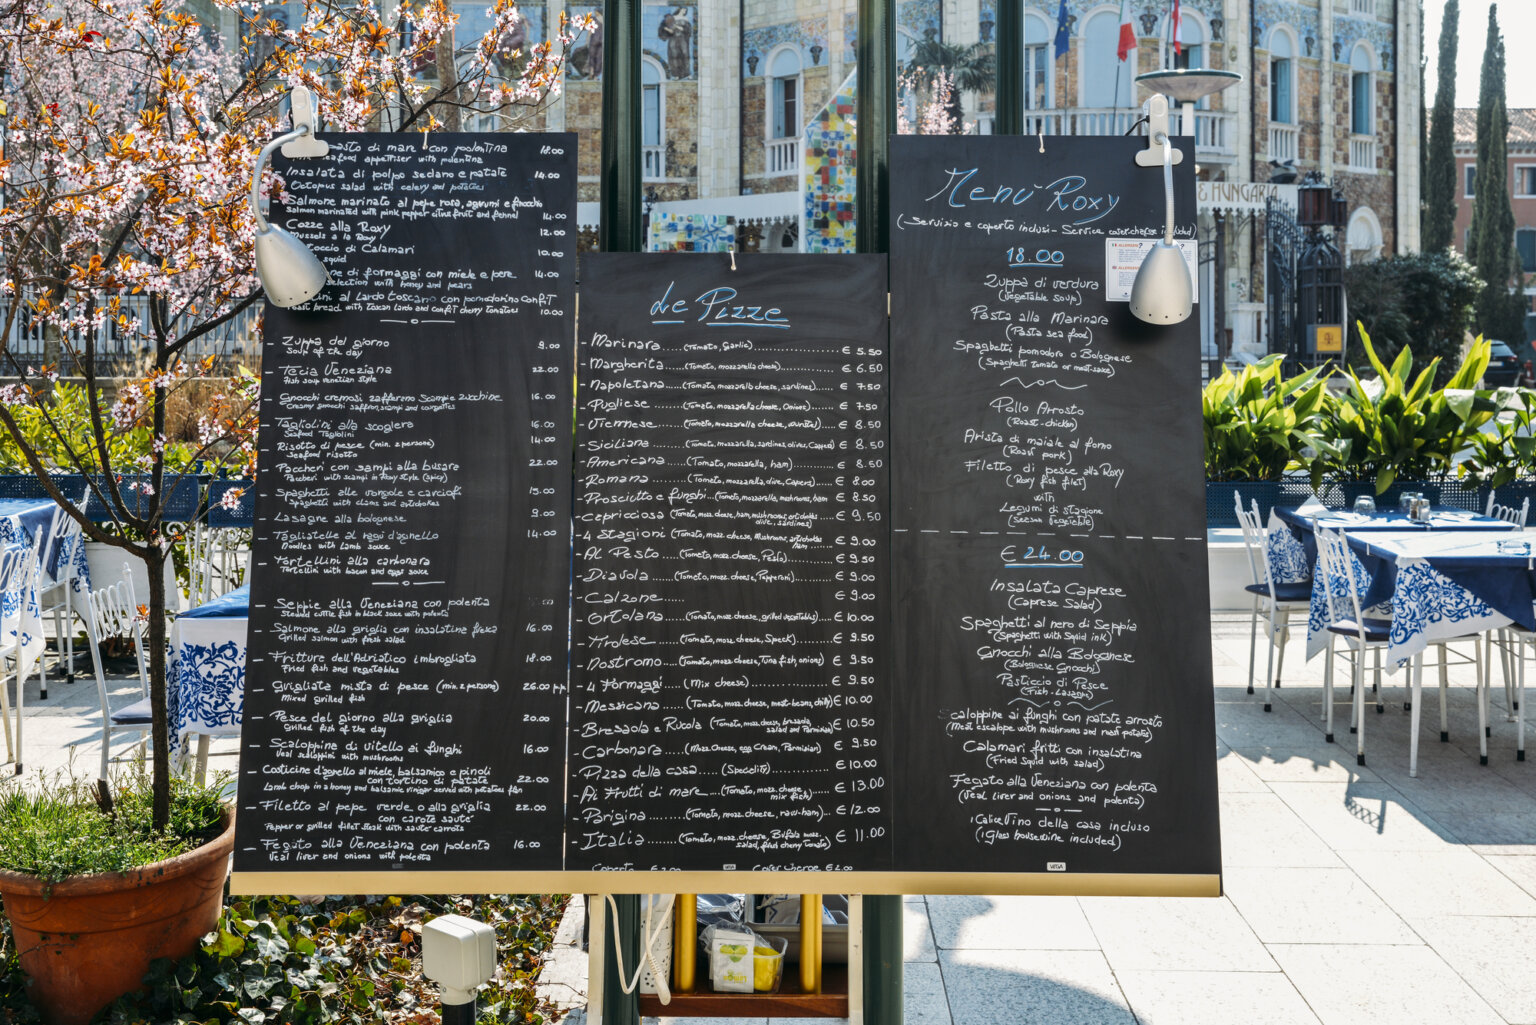 asto di mare con poolentina 18.00
Seafood appetiser with polentina
Insalata di polpo sedano e patate 14.00
Octopus salad with celery and potatoes
Salmone marinato al pepe rosa, agrumi e finocchio
Salmon marinated with pink pepper citrus fruit and fennel 14.00
Cozze alla Roxy 12.00
Mussels a la Roxy
toccio di Calamari 10.00
squid
ne di formaggi con miele e pere 14.00
selection with honey and pears
ini al Lardo toscano con pomodorino Confit
Toast bread with Tuscan lamb and confit cherry tomatoes 10.00
- Zuppa del giorno 9.00
Soup of the day
- Tecia Veneziana 22.00
Fish soup venetian style
- Gnocchi cremosi zafferano Scampi e zucchine 16.00
Creamy gnocchi saffron, scampi and courgettes
- Tagliolini alla scogliera 16.00
Seafood Tagliolini
- Risotto di pesce (min. 2 persone) 14.00
Seafood risotto
- Paccheri con scampi alla busara 22.00
Paccheri with scampi in Roxy style (spicy)
- Spaghetti alle vongole e carciofi 15.00
Spaghetti with clams and artichokes
- Lasagne alla bolognese 9.00
- Tagliatelle al ragù d'agnello 14.00
Noodles with Lamb sauce
- Tortellini alla carbonara
Tortellini with bacon and eggs sauce
- Seppie alla Veneziana con polenta
Stewed cuttle fish in black sauce with polenta
- Salmone alla griglia con insalatina fresca 16.00
Grilled salmon with fresh salad
- Fritture dell'Adriatico imbrogliata 18.00
Fried fish and vegetables
- Grigliata mista di pesce (min. 2 persone) 26.00 p.p.
Mixed grilled fish
- Pesce del giorno alla griglia 20.00
Grilled fish of the day
- Scaloppine di vitello ai funghi 16.00
Veal scaloppini with mushrooms
- Costicine d'agnello al miele, balsamico e pinoli
con tortino di patate 22.00
Lamb chop in a honey and balsamic vinegar served with potatoes flan
- Filetto al pepe verde o alla griglia 22.00
con carote sauté
Pepper or grilled fillet steak with sauté carrots
- Fegato alla Veneziana con polenta 16.00
Veal liver and onions with polenta
Le Pizze
- Marinara......(Tomato, Garlic) € 5.50
- Margherita......(Tomato, mozzarella cheese) € 6.50
- Napoletana......(Tomato, mozzarella cheese, sardines) € 7.50
- Pugliese......(Tomato, mozzarella cheese, Onions) € 7.50
- Viennese......(Tomato, mozzarella cheese, wurstel) € 8.50
- Siciliana......(Tomato, mozzarella, sardines, olives, Capers) € 8.50
- Americana......(Tomato, mozzarella, ham) € 8.50
- Romana......(Tomato, mozzarella, olive, Capers) € 8.00
- Prosciutto e funghi...(Tomato, mozzarella, mushrooms, ham € 8.50
- Capricciosa (Tomato, mozz. cheese, ham, mushrooms, artichokes € 9.50
olive, sardines)
- 4 Stagioni (Tomato, mozz. cheese, Mushrooms, artichokes
Ham...... € 9.00
- Al Pesto......(Tomato, mozz. cheese, Pesto) € 9.00
- Diavola......(Tomato, mozz. cheese, Pepperoni) € 9.00
- Calzone...... € 9.00
- Ortolana......(Tomato, mozz. cheese, grilled vegetables) € 10.00
- Tirolese......(Tomato, mozz. cheese, Speck) € 9.50
- Nostromo...(Tomato, mozz. cheese, Tuna fish, onions) € 9.50
- 4 Formaggi......(Mix cheese) € 9.50
- Messicana......(Tomato, mozz. cheese, meat-beans, chilly) € 10.00
- Bresaola e Rucola (Tomato, mozz. cheese, bresaola € 10.50
salad and Parmisian)
- Carbonara......(Mozz. Cheese, egg Cream, Parmisian) € 9.50
- Pizza della casa......(Speciality) € 10.00
- Ai Frutti di mare...(Tomato, mozz. cheese, € 13.00
mix fish)
- Parigina......(Tomato, mozz. cheese, raw-ham) € 12.00
- Italia......(Tomato, mozz. cheese, Bufala mozz. € 11.00
salad, fresh cherry tomato)
Coperto € 2.00 Cover Charge € 2.00
VEGA
Menù Roxy
(Servizio e coperto inclusi - Service cover charge included)
18.00
Zuppa di verdura
(Vegetable soup)
Pasta alla Marinara
(Pasta sea food)
Spaghetti pomodoro o Bolognese
(Spaghetti tomato or meat-sauce)
Pollo Arrosto
(Roast-chicken)
Arista di maiale al forno
(Roast pork)
Filetto di pesce alla Roxy
(Roxy fish filet)
with
Legumi di stagione
(Season Vegetable)
€ 24.00
Insalata Caprese
(Caprese Salad)
Spaghetti al nero di Seppia
(Spaghetti with Squid ink)
Gnocchi alla Bolognese
(Bolognese Gnocchi)
Pasticcio di Pesce
(Fish-Lasagna)
Scaloppine ai funghi con patate arrosto
(Meat escalope with mushrooms and roast potatos)
Calamari fritti con insalatina
(Fried Squid with salad)
Fegato alla Veneziana con polenta
(Veal liver and onions and polenta)
1 Calice Vino della casa incluso
(1 Glass housewine included)
VEGA
& HUNGARIA